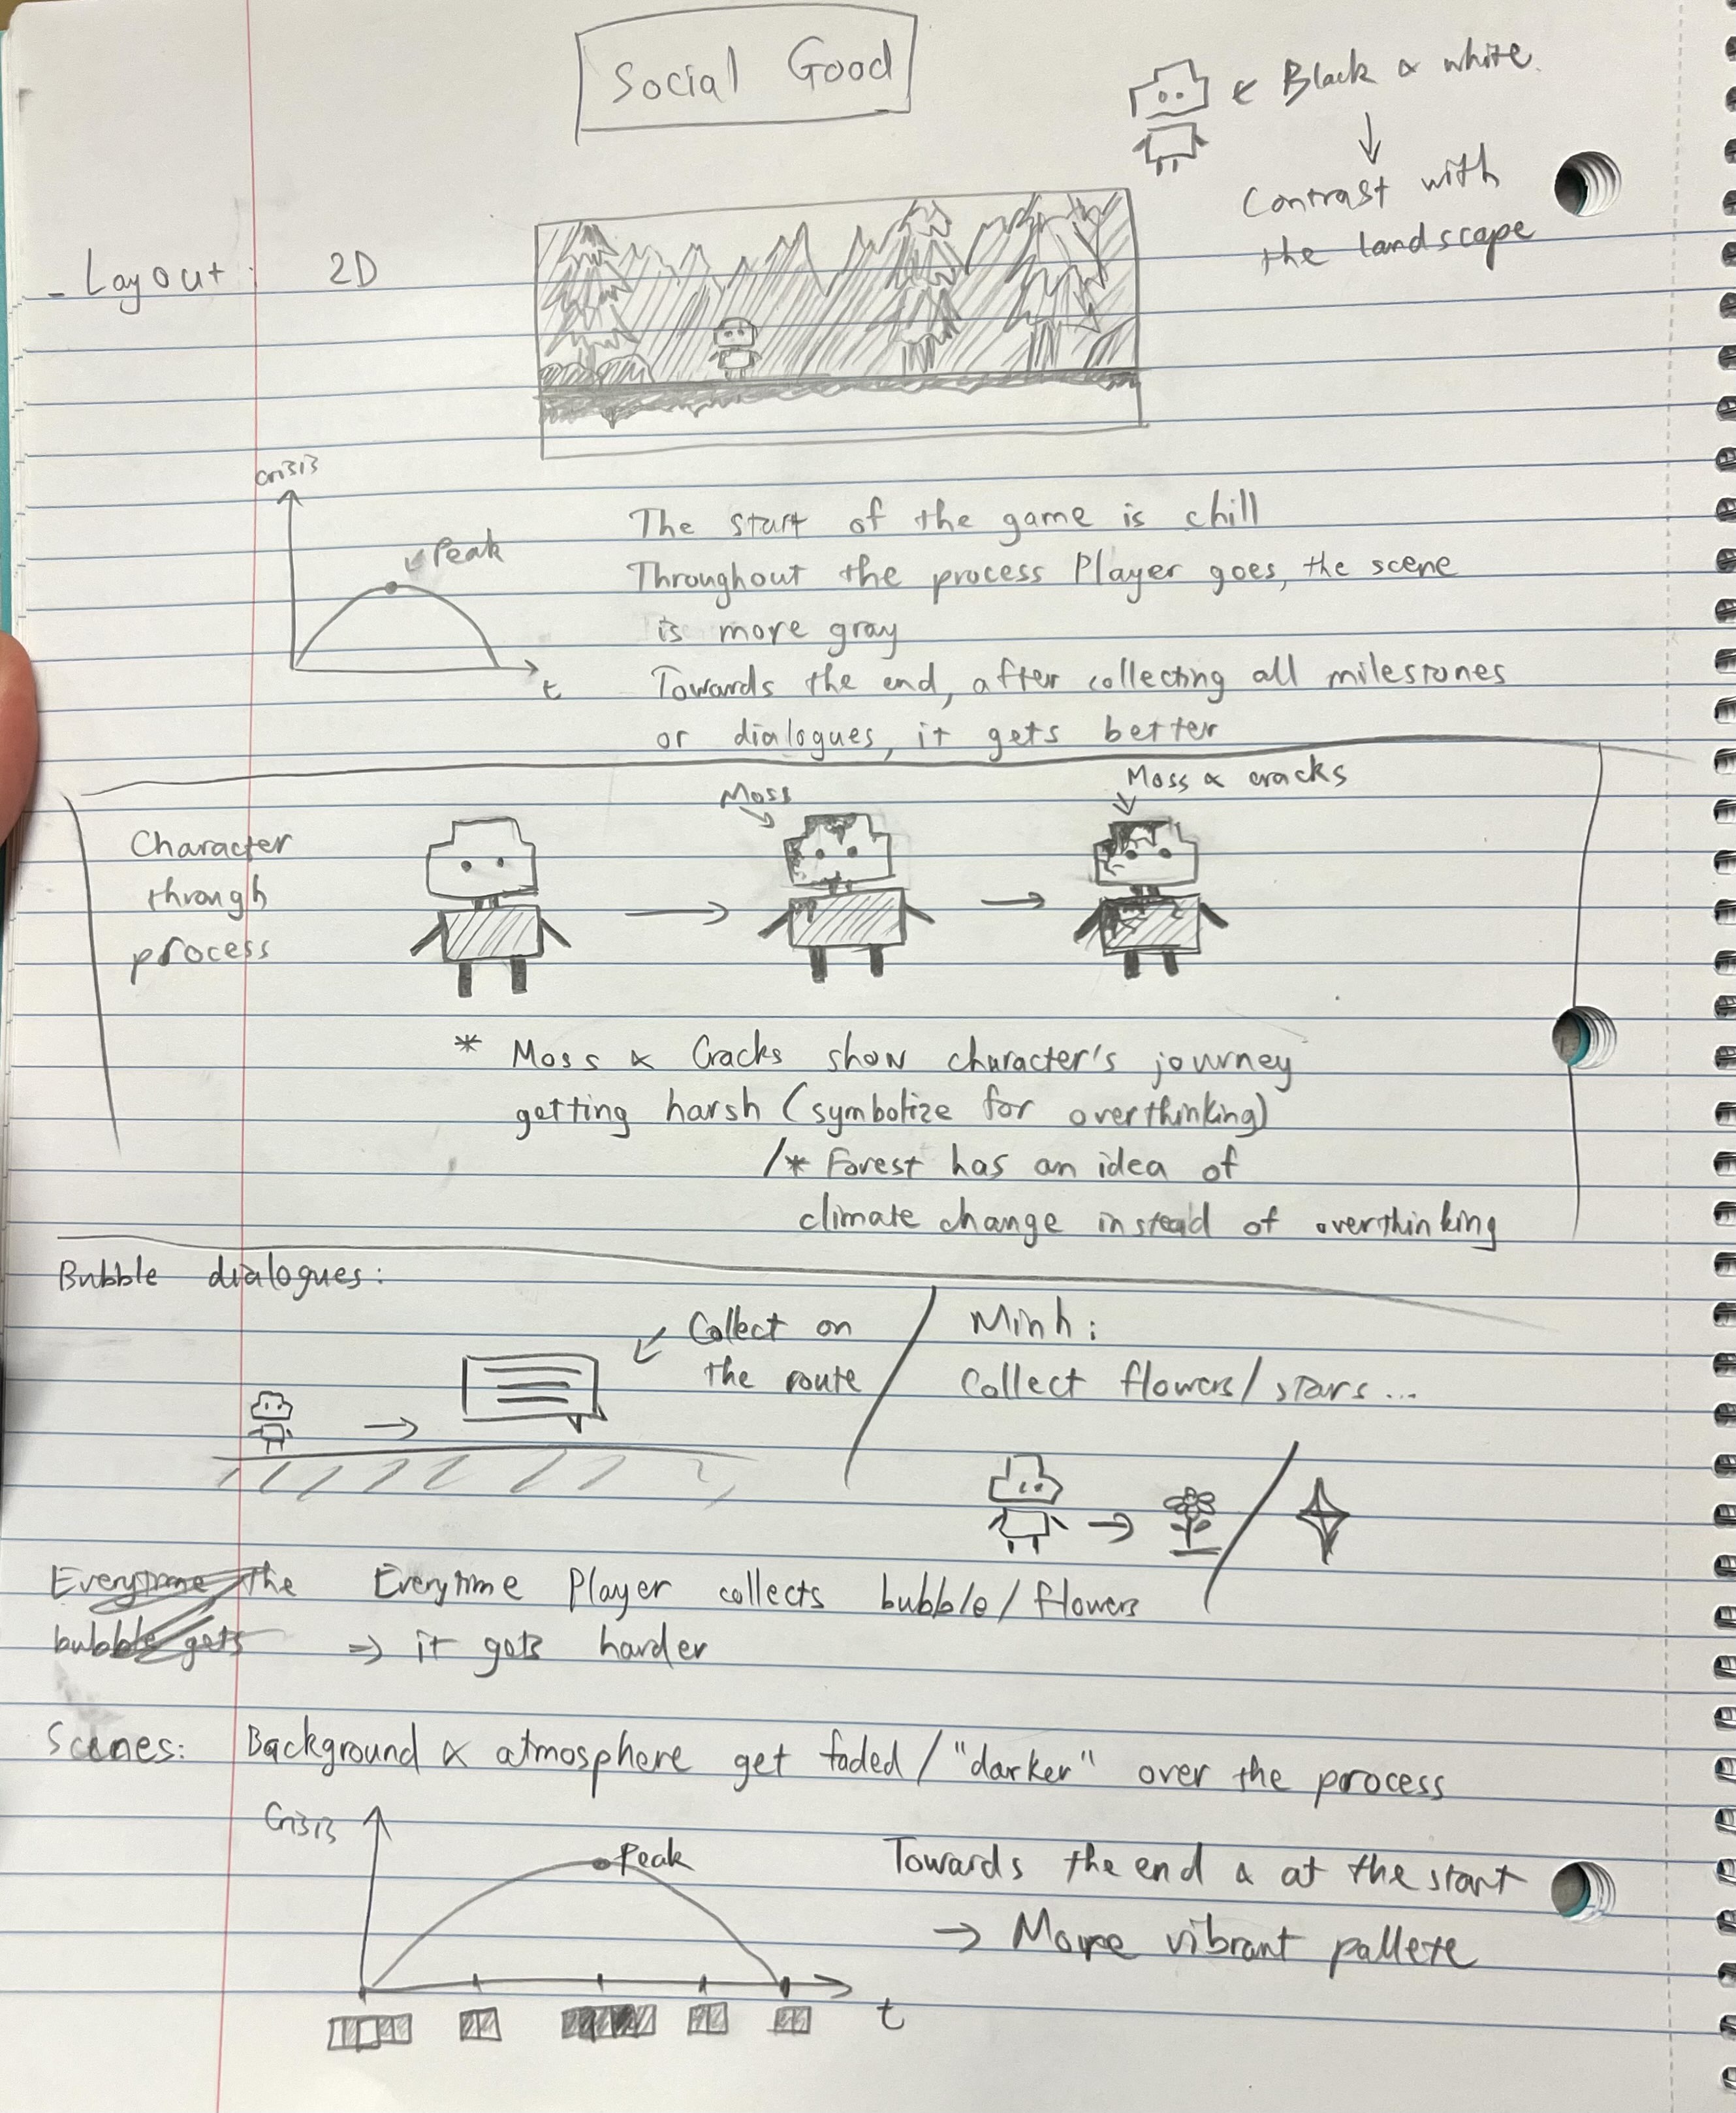 Social Good
← Black & white
↓
Contrast with
the landscape
- Layout: 2D
Crisis
↙ Peak
t
The start of the game is chill
Throughout the process Player goes, the scene
is more gray
Towards the end, after collecting all milestones
or dialogues, it gets better
Character
through
process
Moss
Moss & cracks
* Moss & Cracks show character's journey
getting harsh (symbolize for overthinking)
/* Forest has an idea of
climate change instead of overthinking
Bubble dialogues:
Collect on
the route
Minh:
Collect flowers/stars...
Everytime the
bubble gets
Everytime Player collects bubble/flowers
⇒ it gets harder
Scenes: Background & atmosphere get faded/"darker" over the process
Crisis
Peak
t
Towards the end & at the start
→ More vibrant pallete